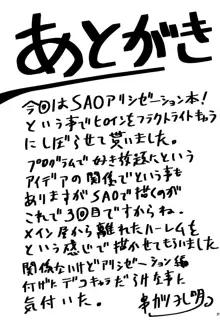 あとがき
今回はSAOアリシゼーション本!
という事でヒロインをフラクトライトキャラ
にしぼらせて貰いました。
プログラムで好き放題という
アイデアの関係でという事も
ありますがSAOで描くのが
これで3回目ですからね。
メイン層から離れたハーレムを
という感じで描かせてもらいました
関係ないけどアリシゼーション編
何げにデコキャラだらけな事に
気付いた。